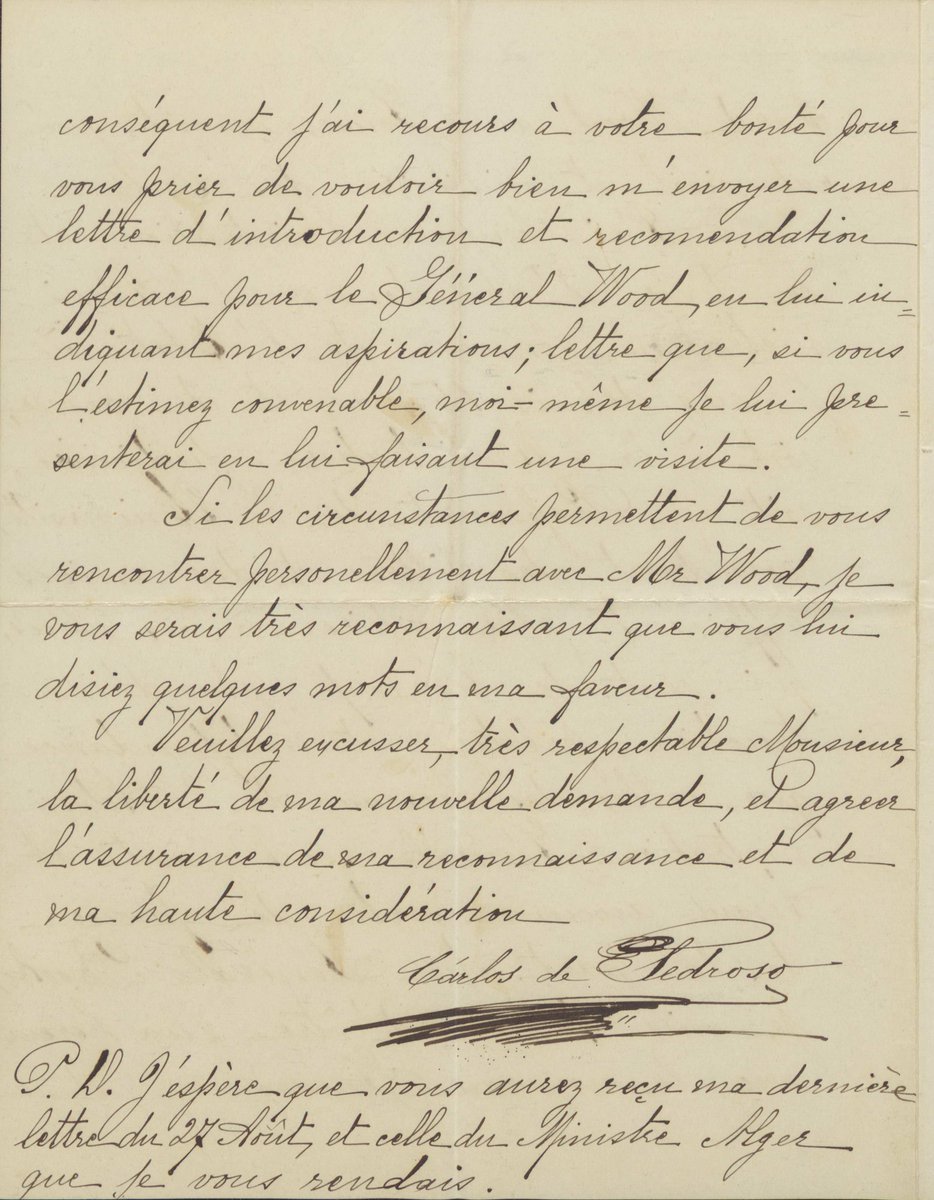 conséquent j'ai recours à votre bonté pour
vous prier de vouloir bien m'envoyer une
lettre d'introduction et recomendation
efficace pour le Général Wood, en lui in=
diquant mes aspirations; lettre que, si vous
l'estimez convenable, moi-même je lui pre=
senterai en lui faisant une visite.
Si les circunstances permettent de vous
rencontrer personellement avec Mr Wood, je
vous serais très reconnaissant que vous lui
disiez quelques mots en ma faveur.
Veuillez excusser, très respectable Monsieur,
la liberté de ma nouvelle demande, et agreer
l'assurance de ma reconnaissance et de
ma haute considération
Cárlos de Pedroso
P. D. J'éspère que vous aurez reçu ma dernière
lettre du 27 Août, et celle du Ministre Alger
que je vous rendais.